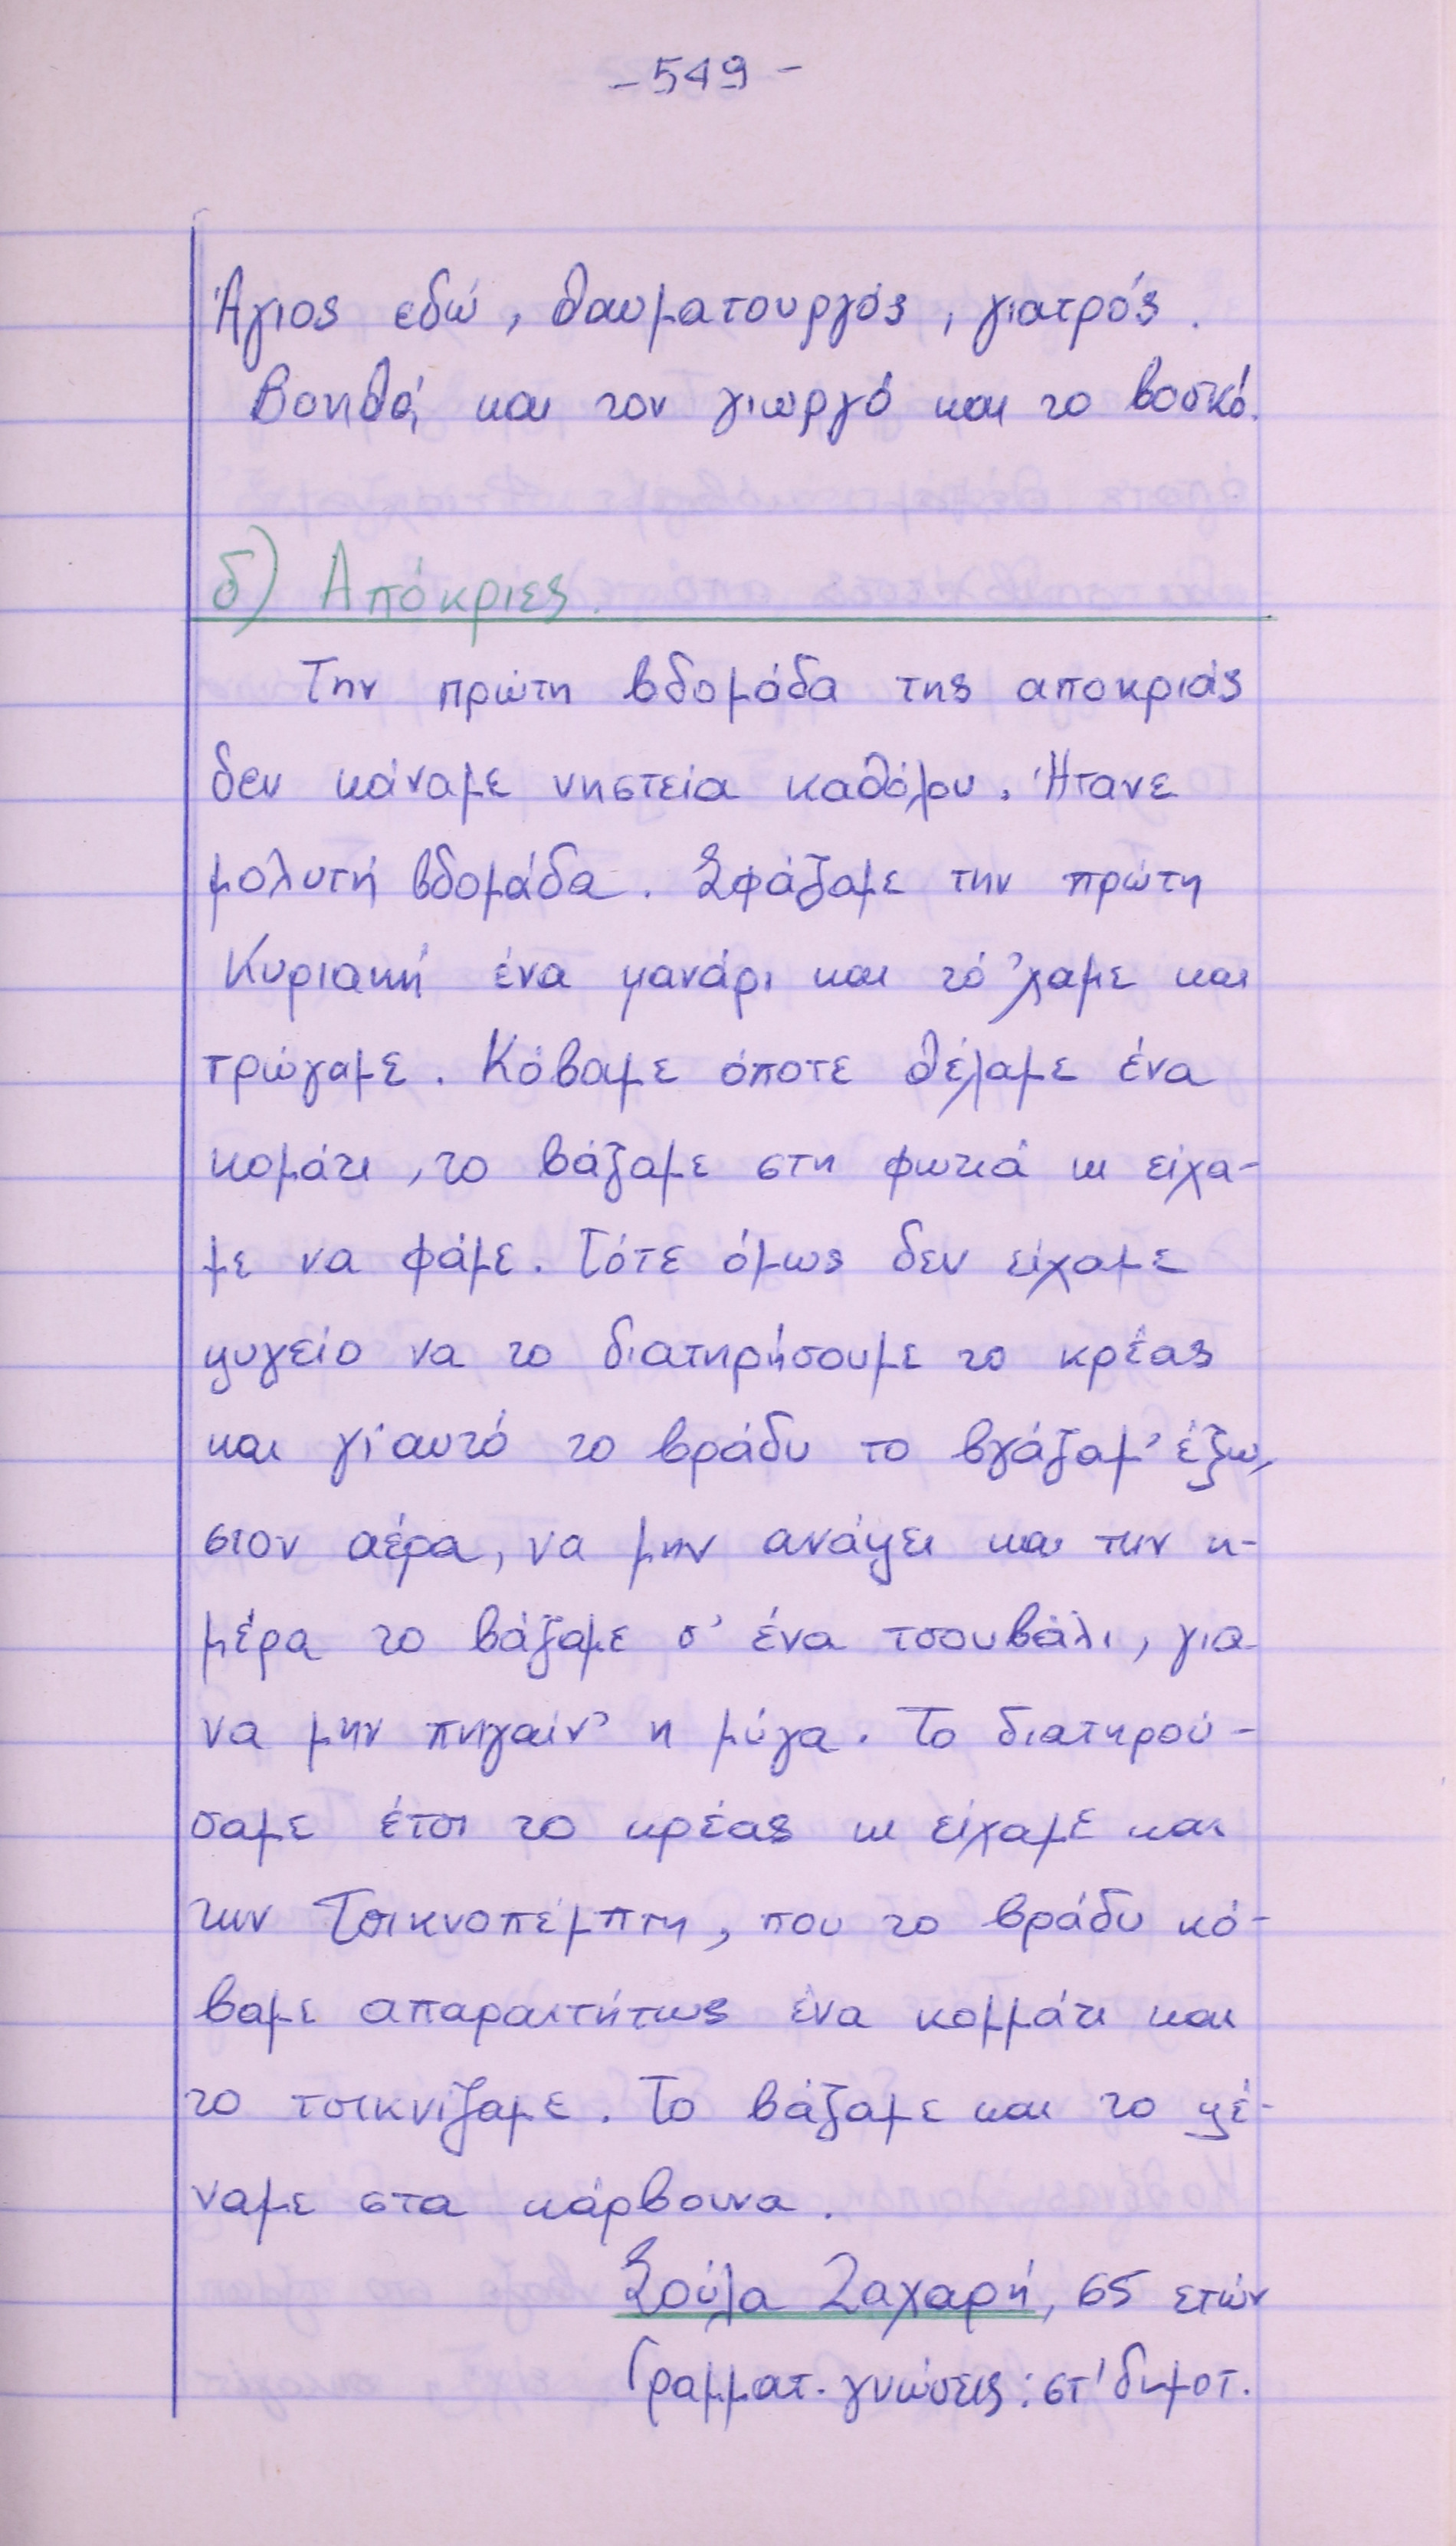 - 549 -
Άγιος εδώ, θαυματουργός, γιατρός.
Βοηθά και τον γιωργό και το βοσκό.
δ) Απόκριες.
Την πρώτη βδομάδα της αποκριάς
δεν κάναμε νηστεία καθόλου. Ήτανε
μολυτή βδομάδα. Σφάζαμε την πρώτη
Κυριακή ένα μανάρι και τό 'χαμε και
τρώγαμε. Κόβαμε όποτε θέλαμε ένα
κομάτι, το βάζαμε στη φωτιά κι είχα-
με να φάμε. Τότε όμως δεν είχαμε
ψυγείο να το διατηρήσουμε το κρέας
και γι' αυτό το βράδυ το βγάζαμ' έξω,
στον αέρα, να μην ανάψει και την η-
μέρα το βάζαμε σ' ένα τσουβάλι, για
να μην πηγαίν' η μύγα. Το διατηρού-
σαμε έτσι το κρέας κι είχαμε και
την Τσικνοπέμπτη, που το βράδυ κό-
βαμε απαραιτήτως ένα κομμάτι και
το τσικνίζαμε. Το βάζαμε και το ψέ-
ναμε στα κάρβουνα.
Σούλα Ζαχαρή, 65 ετών
Γραμματ. γνώσεις: στ' δημοτ.